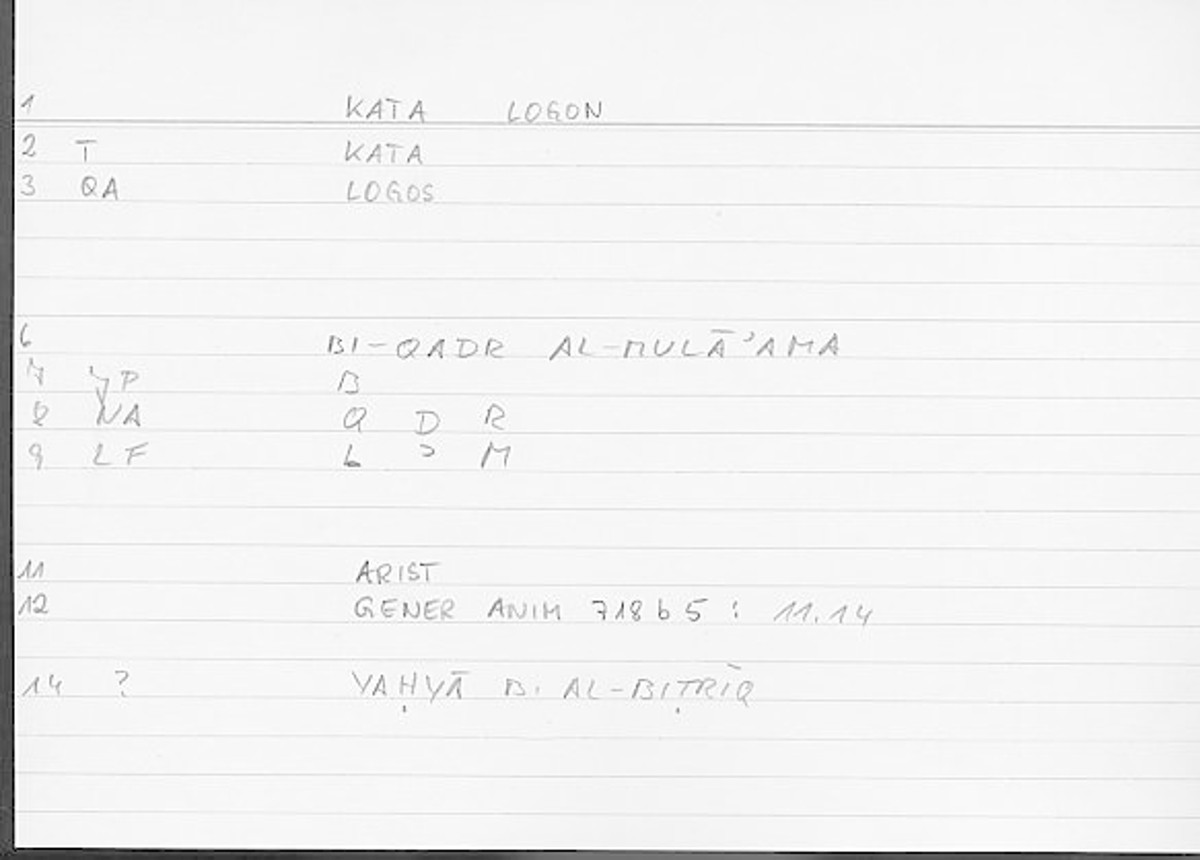 1 KATA LOGON
2 T KATA
3 QA LOGOS
6 BI-QADR AL-MULĀʾAMA
7 YP B
8 NA Q D R
9 LF L ʾ M
11 ARIST
12 GENER ANIM 718 b 5 : 11.14
14 ? YAḤYĀ B. AL-BIṬRĪQ